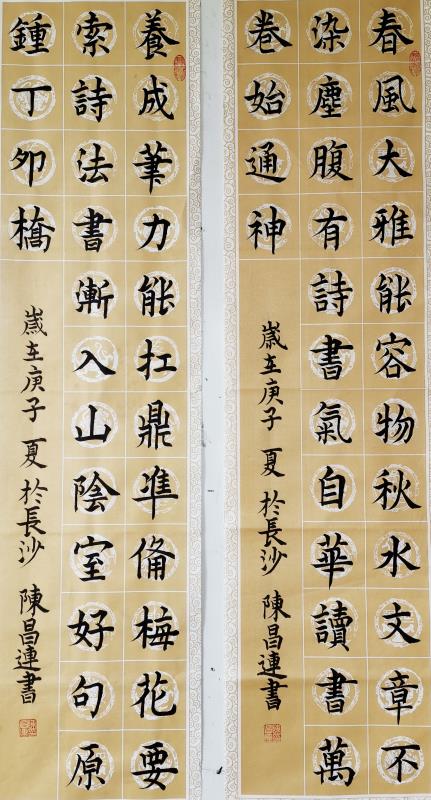 春風大雅能容物秋水文章不
染塵腹有詩書氣自華讀書萬
卷始通神
歲在庚子夏於長沙 陳昌連書
養成筆力能扛鼎準俻梅花要
索詩法書漸入山陰室好句原
鍾丁卯橋
歲在庚子夏於長沙 陳昌連書